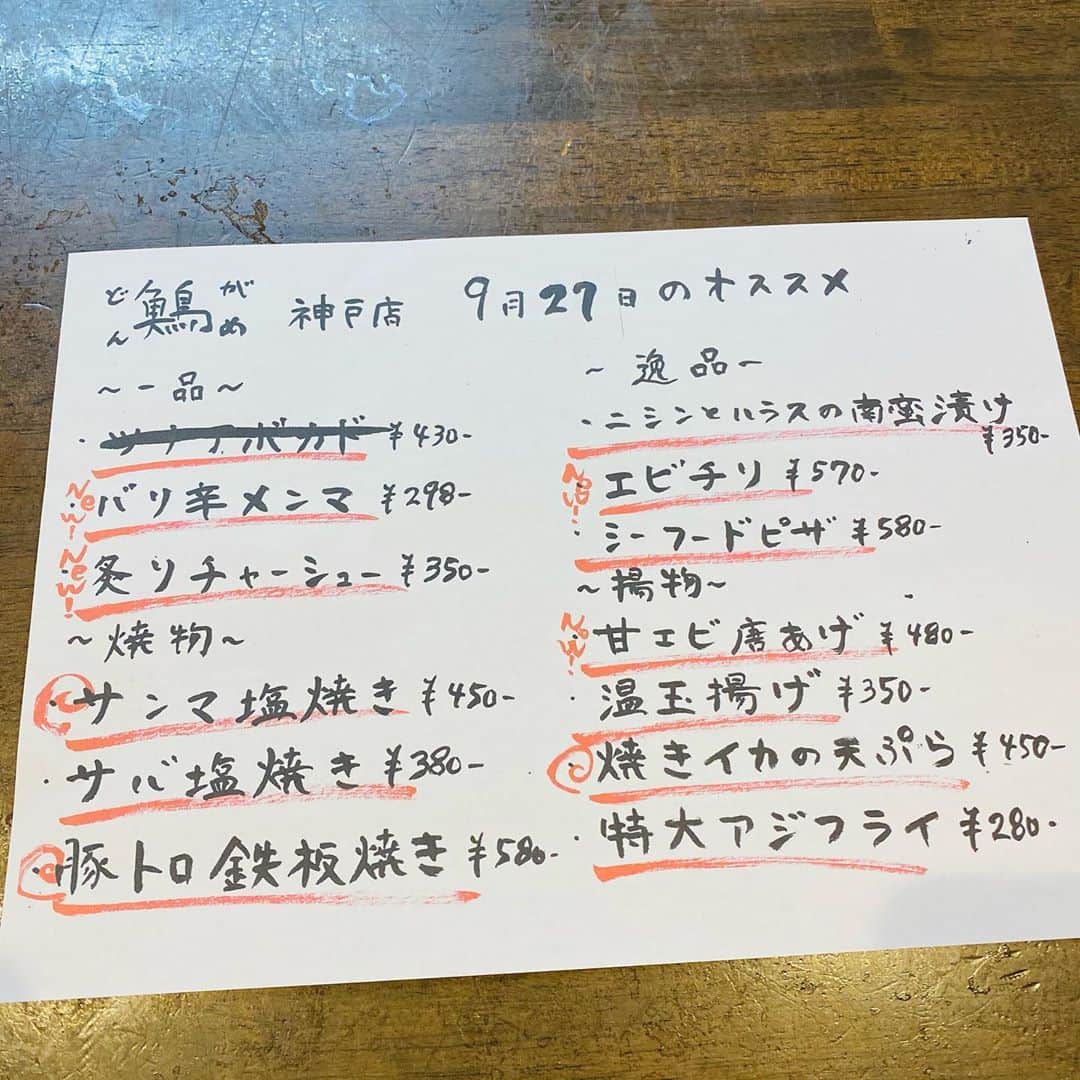 どん 鷠 がめ 神戸店 9月27日のオススメ
~一品~
・ツナアボカド ¥430-
New! ・バリ辛メンマ ¥298-
New! ・炙りチャーシュー ¥350-
~焼物~
・サンマ塩焼き ¥450-
・サバ塩焼き ¥380-
・豚トロ鉄板焼き ¥580-
~逸品~
・ニシンとハラスの南蛮漬け
¥350-
New! ・エビチリ ¥570-
・シーフードピザ ¥580-
~揚物~
New! ・甘エビ唐あげ ¥480-
・温玉揚げ ¥350-
・焼きイカの天ぷら ¥450-
・特大アジフライ ¥280-